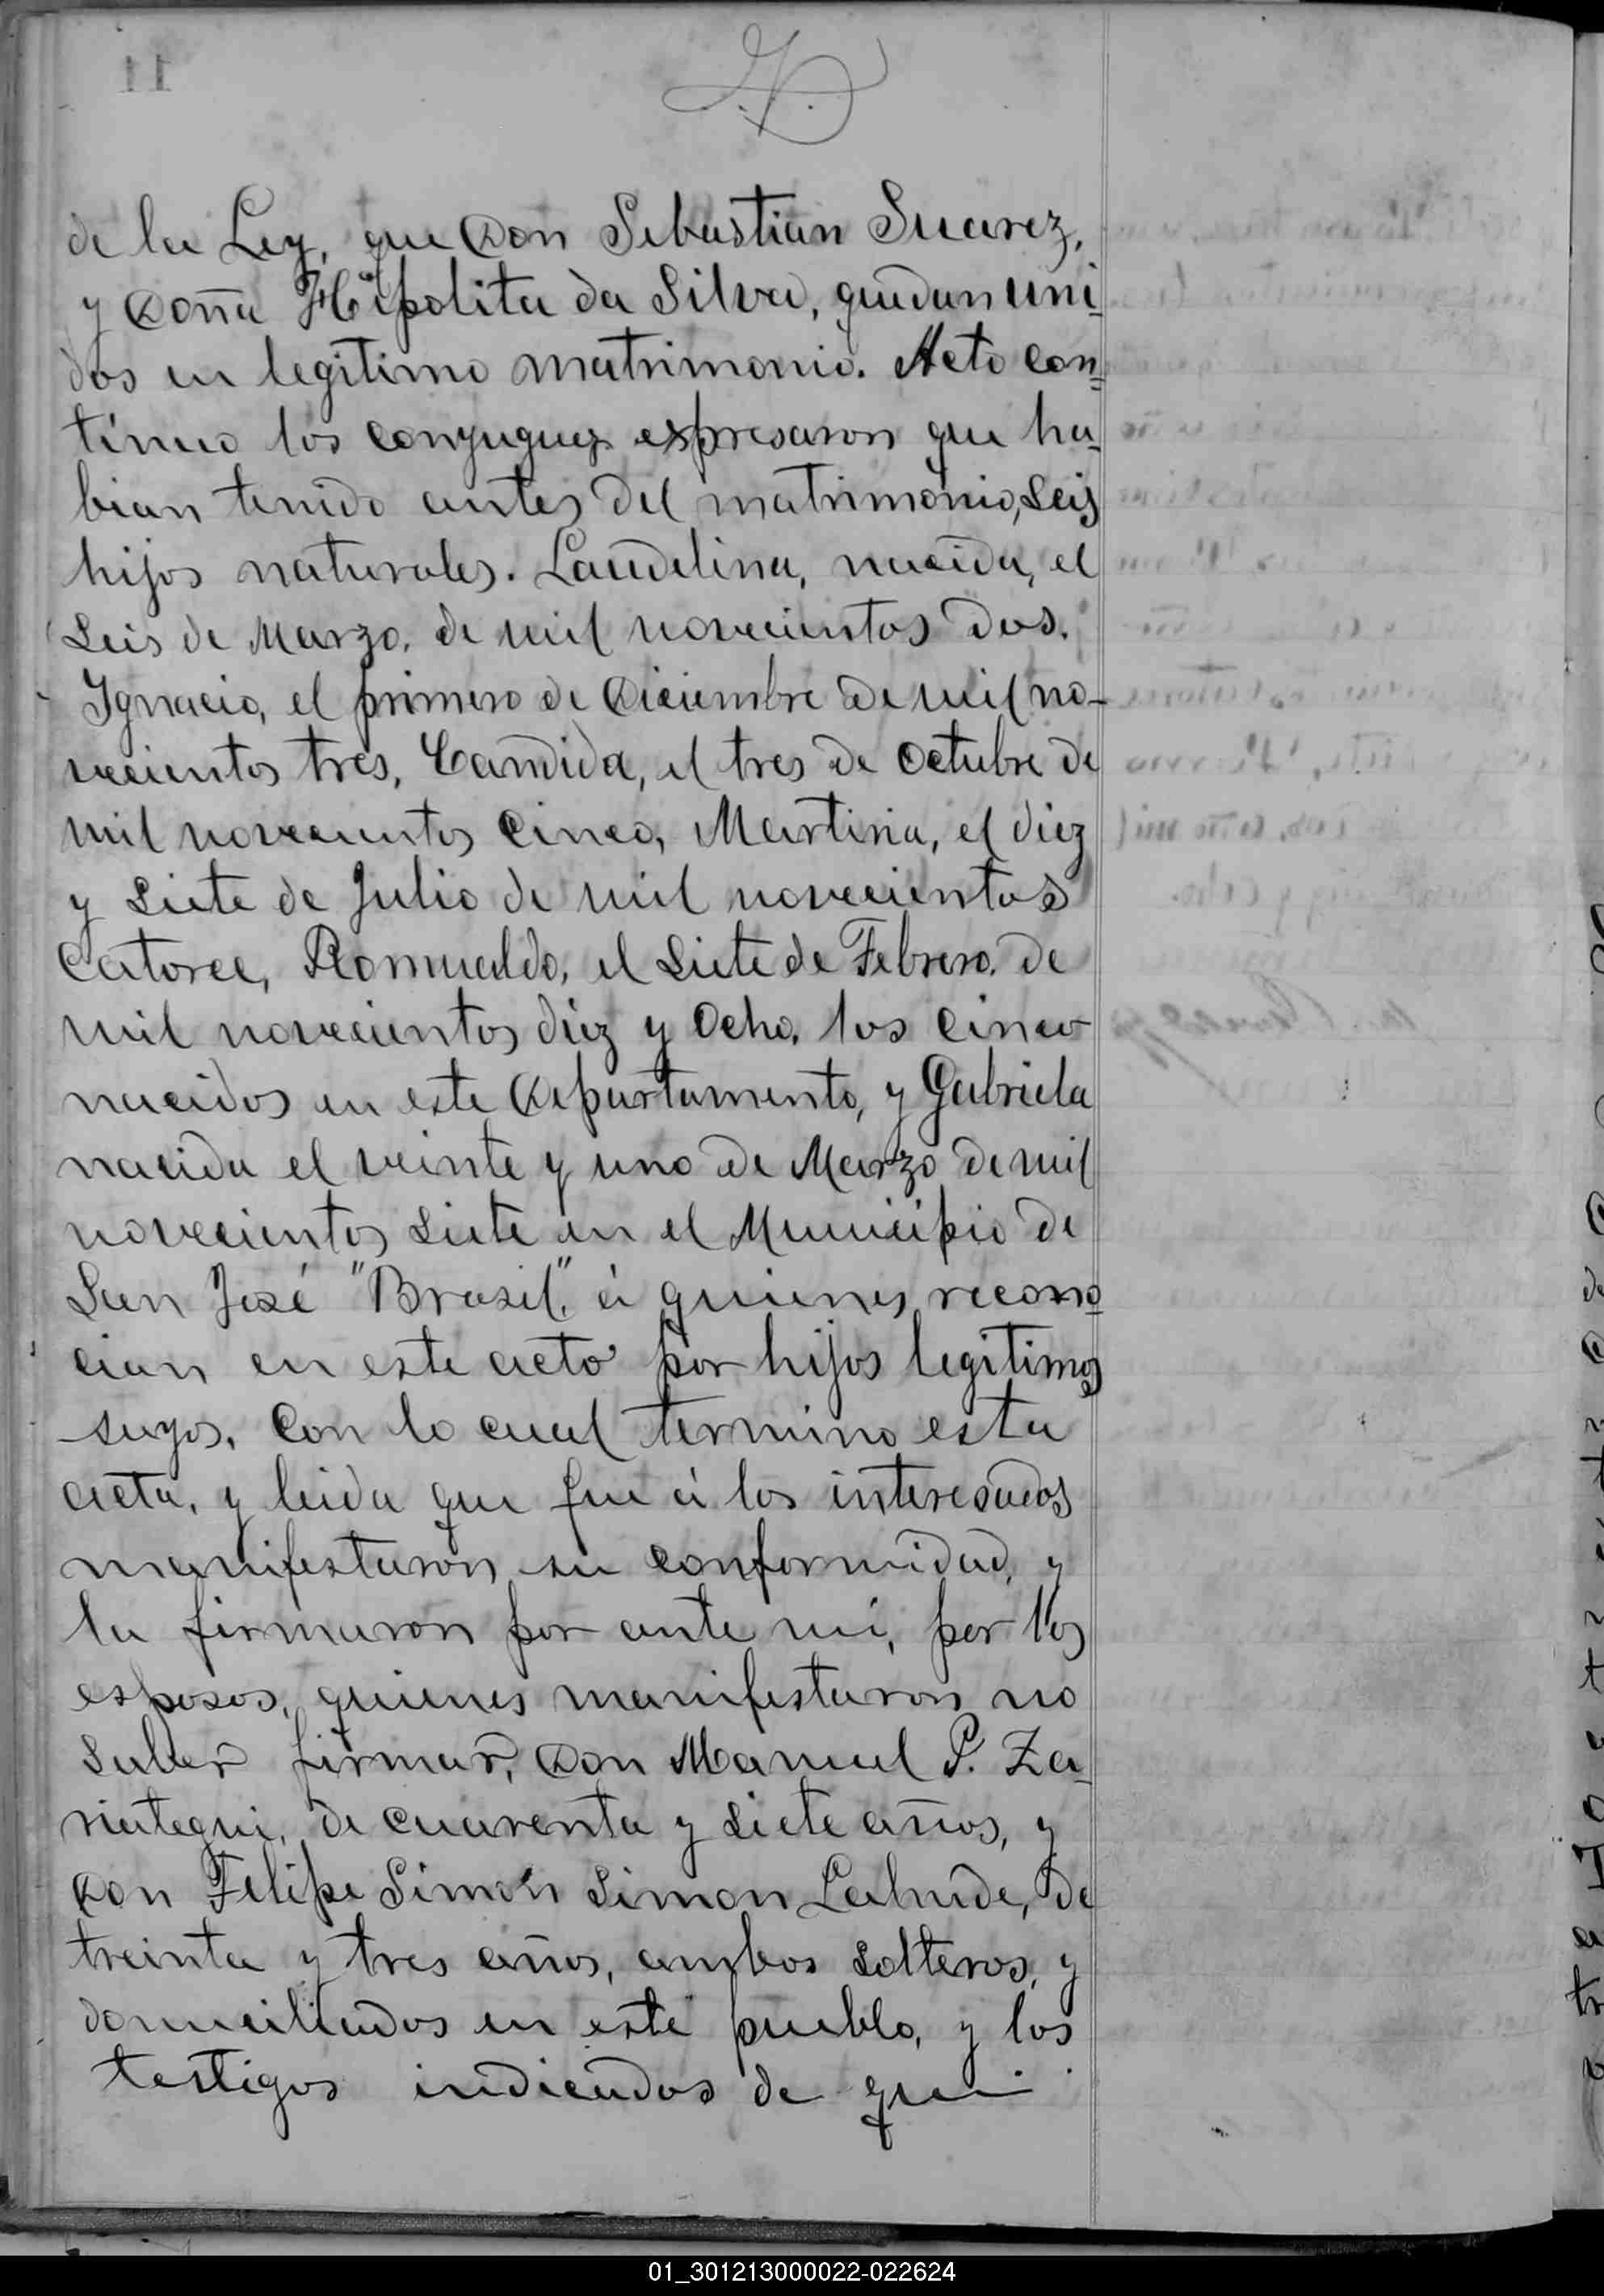 11
de la Ley, que Don Sebastian Suarez,
y Doña Hipolita da Silva, quedan uni
dos en legitimo matrimonio. Acto con=
tínuo los conyugues expresaron que ha
bian tenido antes del matrimonio, seis
hijos naturales. Laudelina, nacida, el
seis de Marzo, de mil novecientos dos.
Ignacio, el primero de Diciembre de mil no-
vecientos tres, Candida, el tres de Octubre de
mil novecientos cinco, Martina, el diez
y siete de Julio de mil novecientos
catorce, Romualdo, el siete de Febrero, de
mil novecientos diez y ocho, los cinco
nacidos en este Departamento, y Gabriela
nacida el veinte y uno de Marzo de mil
novecientos siete en el Municipio de
San José "Brasil," á quienes recono
cian en este acto por hijos legitimos
suyos. Con lo cual termino esta
acta, y leida que fue á los interesados
manifestaron su conformidad, y
la firmaron por ante mi, por los
esposos, quienes manifestaron no
saber firmar, Don Manuel P. Za
riategui, de cuarenta y siete años, y
Don Felipe Simón Simon Lahude, de
treinta y tres años, ambos solteros, y
domiciliados en este pueblo, y los
testigos indicados de que
01_301213000022-022624